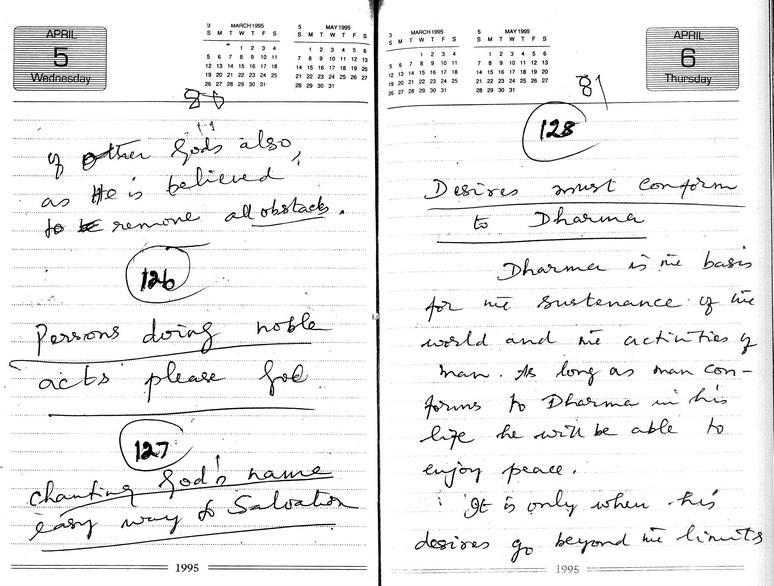 APRIL
5
Wednesday
3 MARCH 1995
S M T W T F S
1 2 3 4
5 6 7 8 9 10 11
12 13 14 15 16 17 18
19 20 21 22 23 24 25
26 27 28 29 30 31
5 MAY 1995
S M T W T F S
1 2 3 4 5 6
7 8 9 10 11 12 13
14 15 16 17 18 19 20
21 22 23 24 25 26 27
28 29 30 31
80
of other Gods also,
as He is believed
to remove all obstacles.
126
Persons doing noble
acts please God
127
Chanting God's name
easy way to Salvation
1995
3 MARCH 1995
S M T W T F S
1 2 3 4
5 6 7 8 9 10 11
12 13 14 15 16 17 18
19 20 21 22 23 24 25
26 27 28 29 30 31
5 MAY 1995
S M T W T F S
1 2 3 4 5 6
7 8 9 10 11 12 13
14 15 16 17 18 19 20
21 22 23 24 25 26 27
28 29 30 31
APRIL
6
Thursday
81
128
Desires must conform
to Dharma
Dharma is the basis
for the sustenance of the
world and the activities of
man. As long as man con-
forms to Dharma in his
life he will be able to
enjoy peace.
It is only when his
desires go beyond the limits
1995